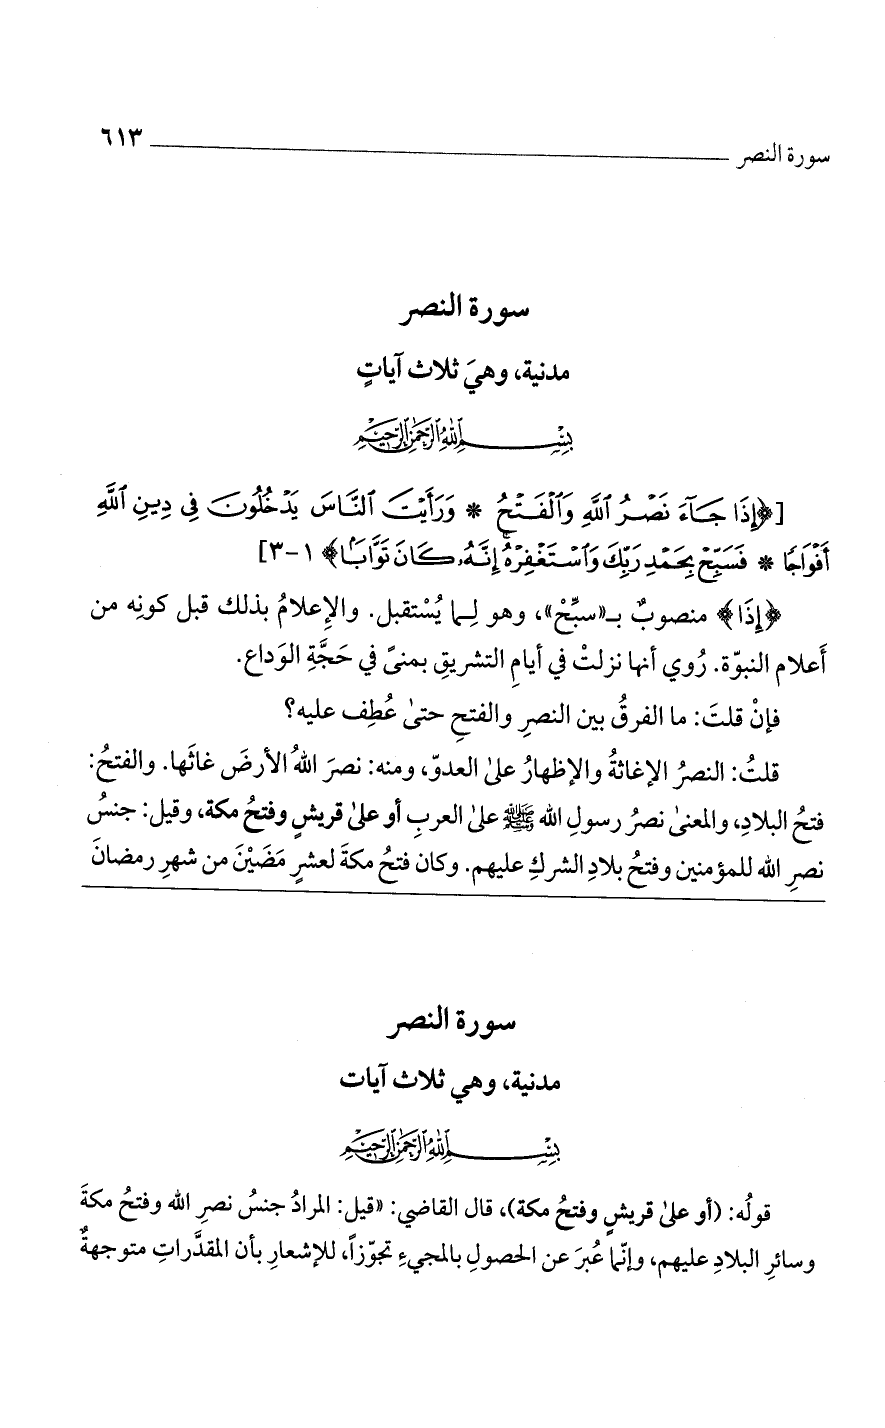 سورة النصر ٦١٣
سورة النصر
مدنية، وهيَ ثلاث آياتٍ
بِسْمِ اللَّهِ الرَّحْمَٰنِ الرَّحِيمِ
[﴿إِذَا جَآءَ نَصْرُ ٱللَّهِ وَٱلْفَتْحُ * وَرَأَيْتَ ٱلنَّاسَ يَدْخُلُونَ فِى دِينِ ٱللَّهِ
أَفْوَاجًا * فَسَبِّحْ بِحَمْدِ رَبِّكَ وَٱسْتَغْفِرْهُ إِنَّهُۥ كَانَ تَوَّابًۢا﴾ ١-٣]
﴿إِذَا﴾ منصوبٌ بـ«سبِّحْ»، وهو لِـما يُسْتقبل. والإعلامُ بذلك قبل كونِه من
أَعلام النبوّة. رُوي أنها نزلتْ في أيامِ التشريقِ بمنىً في حَجَّةِ الوَداع.
فإنْ قلتَ: ما الفرقُ بين النصرِ والفتحِ حتىٰ عُطِف عليه؟
قلتُ: النصرُ الإغاثةُ والإظهارُ علىٰ العدوّ، ومنه: نصرَ اللهُ الأرضَ غاثَها. والفتحُ:
فتحُ البلادِ، والمعنىٰ نصرُ رسولِ الله ﷺ علىٰ العربِ أو علىٰ قريشٍ وفتحُ مكة، وقيل: جنسُ
نصرِ الله للمؤمنين وفتحُ بلادِ الشركِ عليهم. وكان فتحُ مكةَ لعشرٍ مَضَيْنَ من شهرِ رمضانَ
سورة النصر
مدنية، وهي ثلاث آيات
بِسْمِ اللَّهِ الرَّحْمَٰنِ الرَّحِيمِ
قولُه: (أو علىٰ قريشٍ وفتحُ مكة)، قال القاضي: «قيل: المرادُ جنسُ نصرِ الله وفتحُ مكةَ
وسائرِ البلاد عليهم، وإنّما عُبرَ عن الحصولِ بالمجيءِ تجوّزاً، للإشعارِ بأن المقدَّراتِ متوجهةٌ